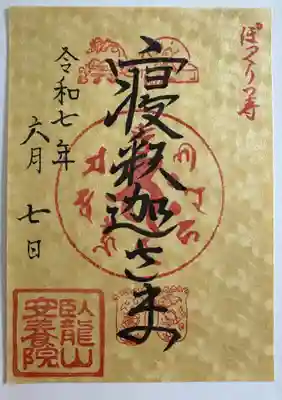 ぽっくり寺
寝釈迦さま
令和七年
六月 七日
臥龍山
安養院